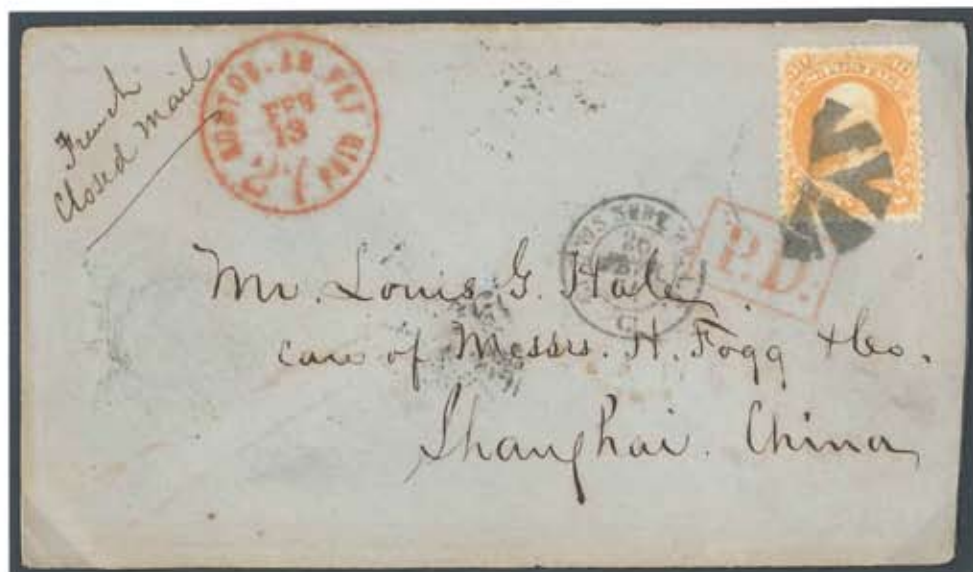 French
Closed Mail
BOSTON. BR. PKT
FEB
13
PAID
P.D.
Mr. Louis G. Hale
care of Messrs. H. Fogg & Co.
Shanghai. China